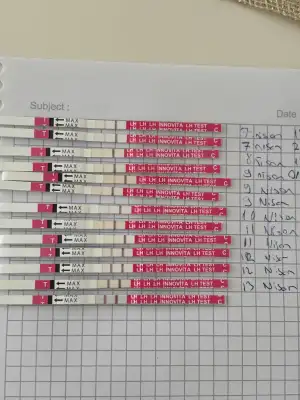 Subject :
Date
MAX
MAX LH LH LH INNOVITA LH TEST C
T MAX LH LH LH INNOVITA LH TEST C
7 nisan
MAX LH LH LH INNOVITA LH TEST C
7 nisan
T MAX LH LH LH INNOVITA LH TEST C
8 nisan
MAX LH LH LH INNOVITA LH TEST C
9 nisan
T MAX LH LH LH INNOVITA LH TEST C
9 Nisan
T MAX LH LH LH INNOVITA LH TEST C
9 Nisan
MAX LH LH LH INNOVITA LH TEST C
10 Nisan
T MAX LH LH LH INNOVITA LH TEST C
11 Nisan
T MAX LH LH LH INNOVITA LH TEST C
11 Nisan
T MAX LH LH LH INNOVITA LH TEST C
12 Nisan
T MAX LH LH LH INNOVITA LH TEST C
12 Nisan
MAX LH LH LH INNOVITA LH TEST C
13 Nisan